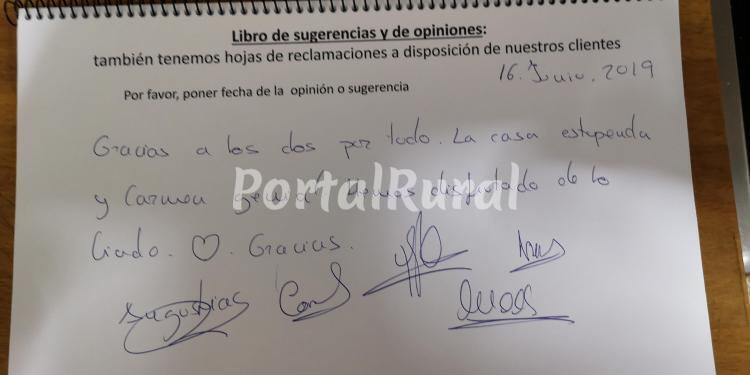 Libro de sugerencias y de opiniones:
también tenemos hojas de reclamaciones a disposición de nuestros clientes
16. Junio. 2019
Por favor, poner fecha de la opinión o sugerencia
Gracias a los dos por todo. La casa estupenda
y Carmen genial Hemos disfrutado de lo
liado. ♡. Gracias.
PortalRural